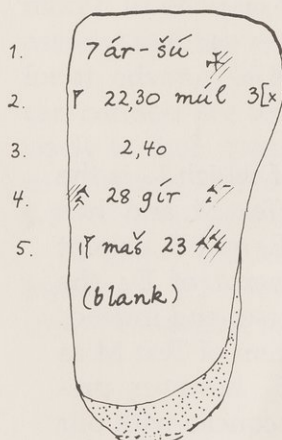 1. 7 ár-šú
2. 𒁹 22,30 múl 3[x
3. 2,40
4. 28 gír
5. maš 23
(blank)